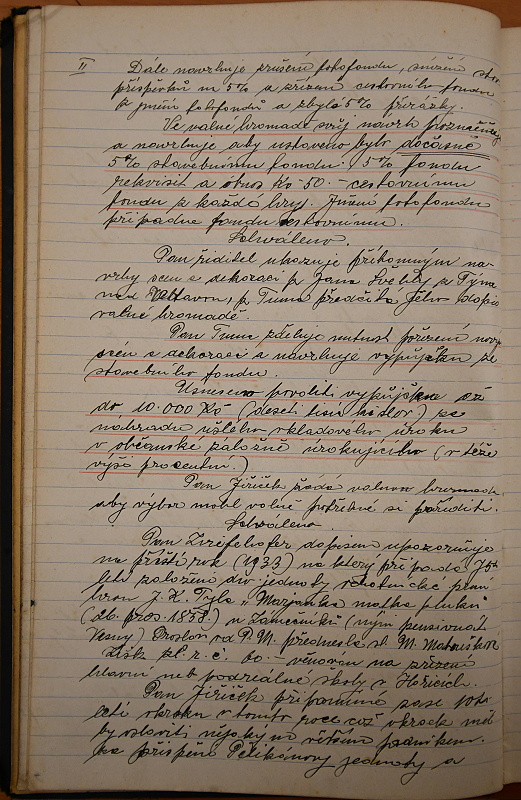 II Dále navrhuje zrušení fotofondu, snížení
příspěvků na 5% a zřízení cestovního fondu
z jmění fotofondů a zbylo 5% přirážky.
Ve valné hromadě svůj návrh
a navrhuje aby ustaveno bylo dočasně
5% stavebnímu fondu. 5% fondu
rekvisit a obnos Kč 50.- cestovnímu
fondu z každé hry. Jmění fotofondu
připadne fondu cestovnímu.
Schváleno.
Pan ředitel ukazuje přítomným ná-
vrhy scen a dekorací p. Jana Světlíka z Týna
nad Vltavou, p. Tuma předčítá jeho dopis
valné hromadě.
Pan Tuma sděluje nutnost pořízení nových
scén a dekorací a navrhuje výpůjčku ze
stavebního fondu.
Usneseno povoliti výpůjčku až
do 10.000 Kč (deset tisíc) za
náhradu ušlého vkladového úroku
v občanské záložně úrokujícího (v téže
výši procentní.)
Pan Jiříček žádá valnou hromadu,
aby výbor mohl volně potřebné si poříditi.
Schváleno.
Pan dopisem upozorňuje
na příští rok (1933) na který připadá 75ti
leté založení div. jednoty
hrou J. K. Tyla „Marjánka matka pluku"
(26. pros. 1858.) v Zámečníků (nyní pensionát
Vesny) od P. M. přednesla sl. M.
Zisk zl. r. č. 60.- věnován na zřízení
hlavní neb podreálné školy v Hořicích.
Pan Jiříček připomíná zase
letí okrsku v tomto roce což okrsek
by oslaviti nějakým větším podnikem.
za přispění Pelikánovy jednoty a